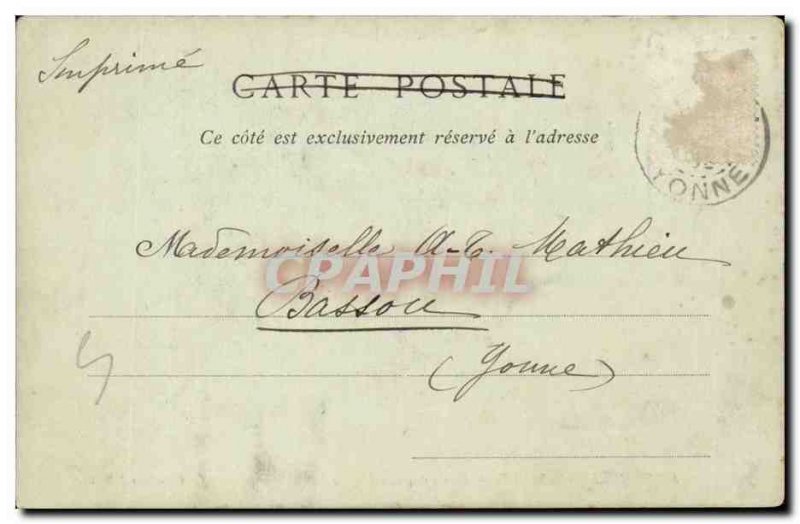 Imprimé
CARTE POSTALE
Ce côté est exclusivement réservé à l'adresse
YONNE
Mademoiselle A-T. Mathieu
CPAPHIL
Bassou
(Yonne)